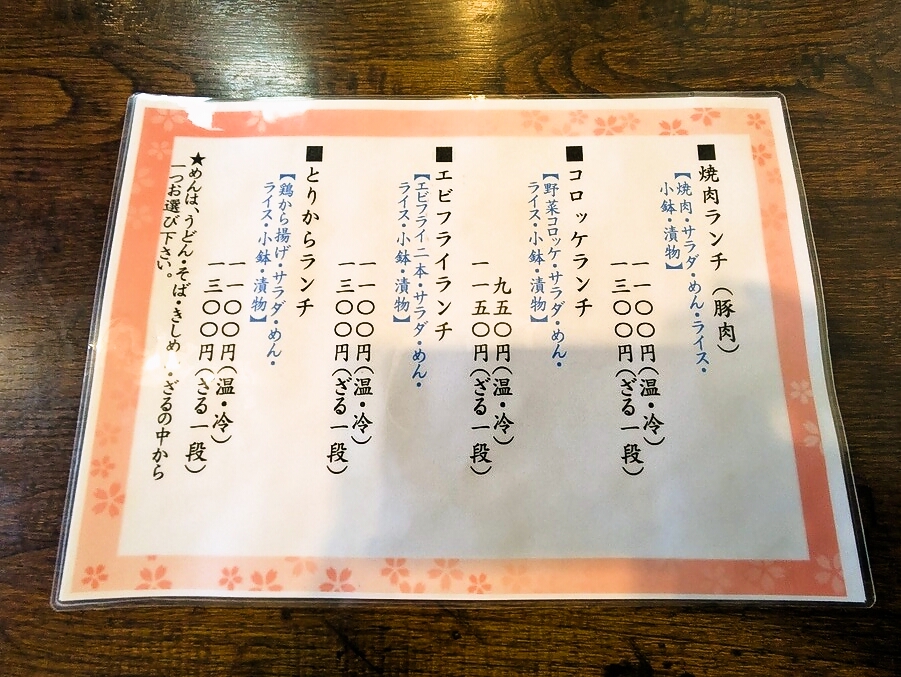 ■焼肉ランチ（豚肉）
【焼肉・サラダ・めん・ライス・
小鉢・漬物】
一一〇〇円（温・冷）
一三〇〇円（ざる一段）
■コロッケランチ
【野菜コロッケ・サラダ・めん・
ライス・小鉢・漬物】
九五〇円（温・冷）
一一五〇円（ざる一段）
■エビフライランチ
【エビフライ二本・サラダ・めん・
ライス・小鉢・漬物】
一一〇〇円（温・冷）
一三〇〇円（ざる一段）
■とりからランチ
【鶏から揚げ・サラダ・めん・
ライス・小鉢・漬物】
一一〇〇円（温・冷）
一三〇〇円（ざる一段）
★めんは、うどん・そば・きしめん・ざるの中から
一つお選び下さい。